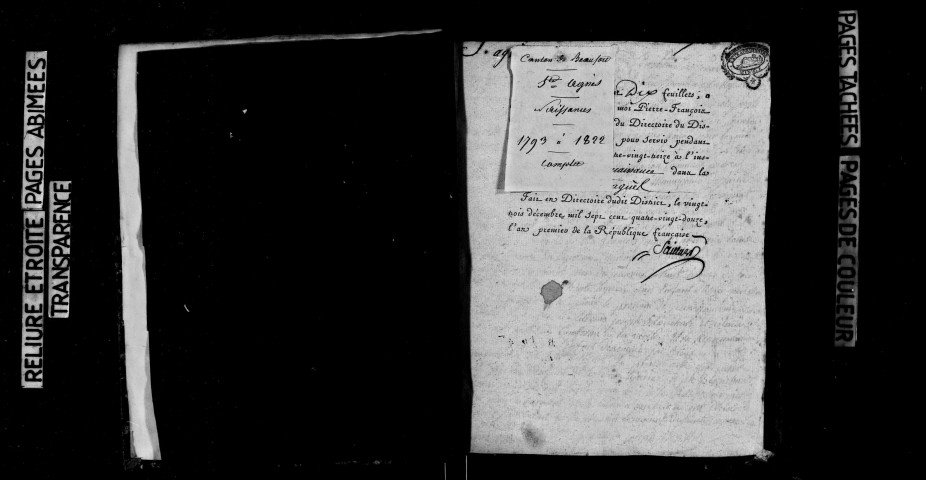 RELIURE ETROITE PAGES ABIMEES
TRANSPARENCE
Canton de Beaufort
Ste Agnès
Naissances
1793 à 1822
Complet
Dix feuillets, a
moi Pierre-François
du Directoire du Dis-
pour servir pendant
vingt-treize à l'ins-
naissance dans la
Fait en Directoire dudit District, le vingt-
trois décembre mil sept cent quatre-vingt-douze,
l'an premier de la République française
PAGES TACHEES PAGES DE COULEUR